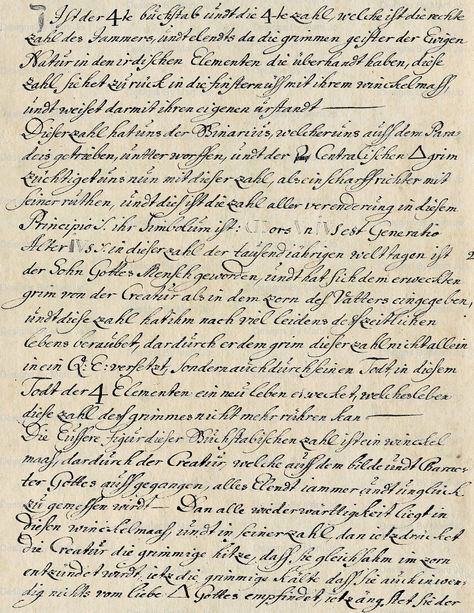 Ist der 4te büchstab ündt die 4te zahl, welche ist die rechte
zahl des Jammers, ündt elendts da die grimmen geister der Ewigen
Natür in den irdischen Elementen die überhandt haben, diese
zahl, siehet zürück in die finsternüss mit ihrem winckelmass,
ündt weiset darmit ihren eigenen ürstandt —
Dieser zahl hat üns der Binarius, welcher üns auss dem Para-
deis getrieben, üntter worffen, ündt der Centralischen △ grim
züchtiget üns nün mit dieser zahl, als ein scharffrichter mit
seiner rüthen, ündt diss ist die zahl aller verenderüng in diesem
Principio S. ihr Simbolum ist: ors est Generatio
Alter S. in dieser zahl der taüsendt jährigen welttagen ist
der Sohn Gottes Mensch geworden, ündt hat sich dem erweckten
grim von der Creatür als in dem zorn des Vatters eingegeben,
ündt diese zahl hat ihm nach viel leidens des zeitlichen
lebens beraübet, dardürch er dem grim dieser zahl nicht allein
in ein Q: E: versetzt, sondern aüch dürch seinen Todt, in diesem
Todt der 4 Elementen ein neü leben erwecket, welches leben
diese zahl dess grimmes nicht mehr rühren kan —
Die Eüssere figür dieser Büchstabischen zahl ist ein winckel
maas, dardürch der Creatür, welche aüss dem bilde ündt Charac-
ter Gottes aüssgegangen, alles Elendt iammer ündt unglück
zü gemessen wirdt — Dan alle wiederwärttigkeit liegt in
diesen winckelmaas, ündt in seiner zahl, dan ietz drücket
die Creatür die grimmige hitze, dass sie gleichsahm im zorn
entzündet wirdt, ietz die grimmige Kälte dass sie aüch inwen-
dig nichts vom liebe △ Gottes empfindet ietz ängstet sie der